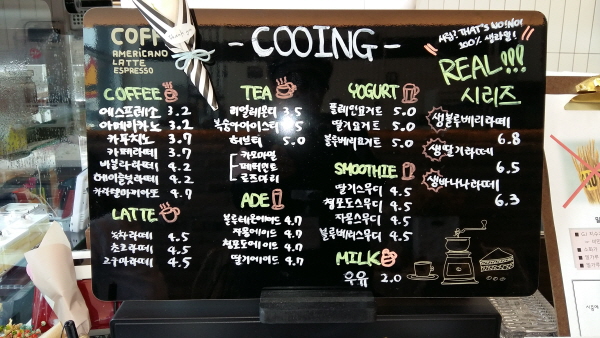 COFF
AMERICANO
LATTE
ESPRESSO
- COOING -
시럽? THAT'S NO!NO!
100% 생과일!
REAL!!!
시리즈
생블루베리라떼
6.8
생딸기라떼
6.5
생바나나라떼
6.3
COFFEE
에스프레소 3.2
아메리카노 3.2
카푸치노 3.7
카페라떼 3.7
바닐라라떼 4.2
헤이즐넛라떼 4.2
카라멜마키아또 4.7
LATTE
녹차라떼 4.5
초코라떼 4.5
고구마라떼 4.5
TEA
리얼레몬티 3.5
복숭아아이스티 3.5
허브티 5.0
카모마일
페퍼민트
로즈마리
ADE
블루레몬에이드 4.7
자몽에이드 4.7
청포도에이드 4.7
딸기에이드 4.7
YOGURT
플레인요거트 5.0
딸기요거트 5.0
블루베리요거트 5.0
SMOOTHIE
딸기스무디 4.5
청포도스무디 4.5
자몽스무디 4.5
블루베리스무디 4.5
MILK
우유 2.0